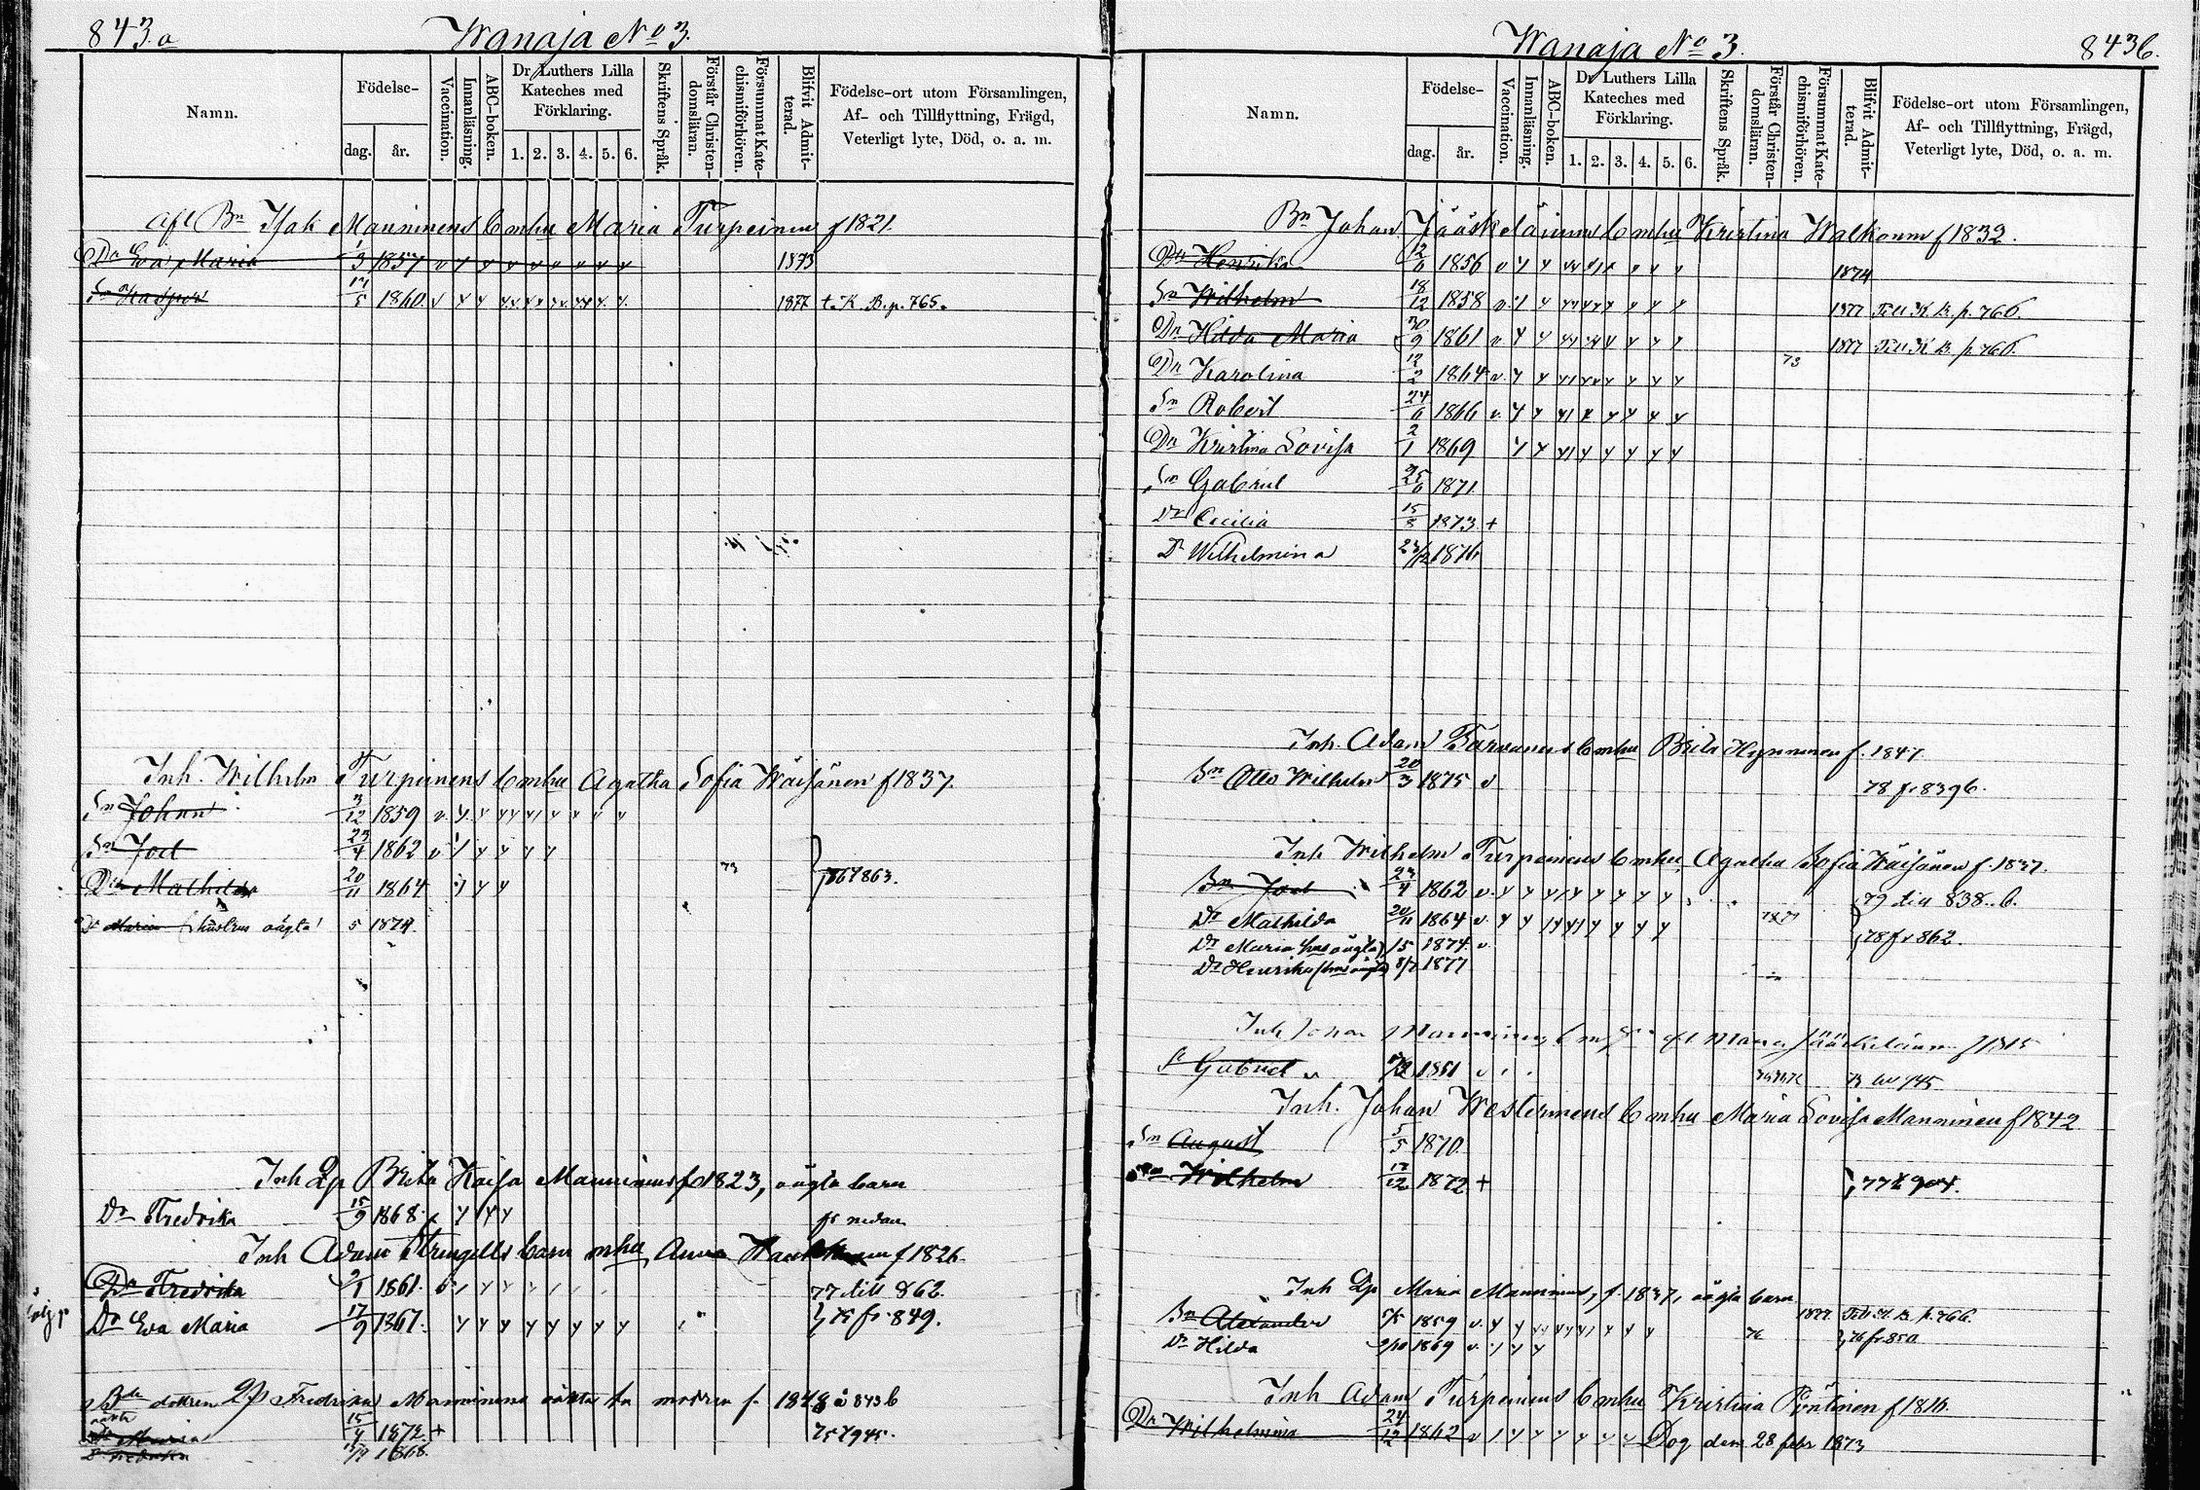 843.a Wanaja No 3.
Namn. Födelse- dag. år. Vaccination. Innanläsning. ABC-boken. Dr Luthers Lilla Kateches med Förklaring. 1. 2. 3. 4. 5. 6. Skriftens Språk. Förstår Christendomsläran. Försummat Katechismiförhören. Blifvit Admitterad. Födelse-ort utom Församlingen, Af- och Tillflyttning, Frägd, Veterligt lyte, Död, o. a. m.
Afl Bn Isak Manninens b mhu Maria Turpeinen f 1821.
Dr Eva Maria 1/3 1857 1873
Sn Kasper 1860 1877 t. K. B. p. 765.
Inh. Wilhelm Turpeinens b mhu Agatha Sofia Wäisänen f 1837.
Sn Johan 3/12 1859
Sn Joel 23/4 1862
Dr Mathilda 20/11 1864 73 863.
Dr Maria (hustrus oägta) 5 1874
Inh Qp Brita Kaisa Manninens f 1823, oägta barn
Dr Fredrika 15/9 1868 fr nedan
Inh Adam Strengells barn mhu Anna f 1826
Dr Fredrika 2/1 1861. 77 till 862.
Dr Eva Maria 17/9 1867. 75 fr 849.
dottren Qp Fredrika Manninens modren f. 1848 å 843 b
Dr Maria 15/4 1872 + 75 945.
1868.
Wanaja No 3. 843b.
Namn. Födelse- dag. år. Vaccination. Innanläsning. ABC-boken. Dr Luthers Lilla Kateches med Förklaring. 1. 2. 3. 4. 5. 6. Skriftens Språk. Förstår Christendomsläran. Försummat Katechismiförhören. Blifvit Admitterad. Födelse-ort utom Församlingen, Af- och Tillflyttning, Frägd, Veterligt lyte, Död, o. a. m.
Bn Johan Jääskeläinens b mhu Kristina Walkonen f 1832.
Dr Henrika 12/6 1856 1874
Sn Wilhelm 18/12 1858 1877 Till K. B. p. 766.
Dr Hilda Maria 30/9 1861 1877 Till K. B. p. 766.
Dr Karolina 12/2 1864 73
Sn Robert 24/6 1866
Dr Kristina Lovisa 2/1 1869
Sn Gabriel 25/6 1871
Dr Cecilia 15/8 1873 +
Dr Wilhelmina 23/12 1876
Inh. Adam Tarvanens b mhu Brita Hynninen f. 1847.
Sn Otto Wilhelm 20/3 1875 v 78 fr 839b.
Inh Wilhelm Turpeinens b mhu Agatha Sofia Wäisänen f. 1837.
Sn Joel 23/4 1862 79 till 838.b.
Dr Mathilda 20/11 1864
Dr Maria (hus oägta) 15 1874 78 fr 862.
Dr Henrika (hus oägta) 8/2 1877
Inh Johan Manninens b m Maria Jääskeläinen f 1815
Sn Gabriel 1851 945
Inh. Johan Westermens b mhu Maria Lovisa Manninen f 1842
Sn August 5/5 1870
Sn Wilhelm 17/12 1872 + 77 t 904.
Inh Qp Maria Manninens, f. 1837, oägta barn
Sn Alexander 5/5 1859 1877 Till K. B. p. 766.
Dr Hilda 2/10 1869 76 76 fr 850
Inh Adam Turpeinens b mhu Kristina Pöntinen f 1816.
Dr Wilhelmina 24/12 1862 Dog den 28 febr 1873